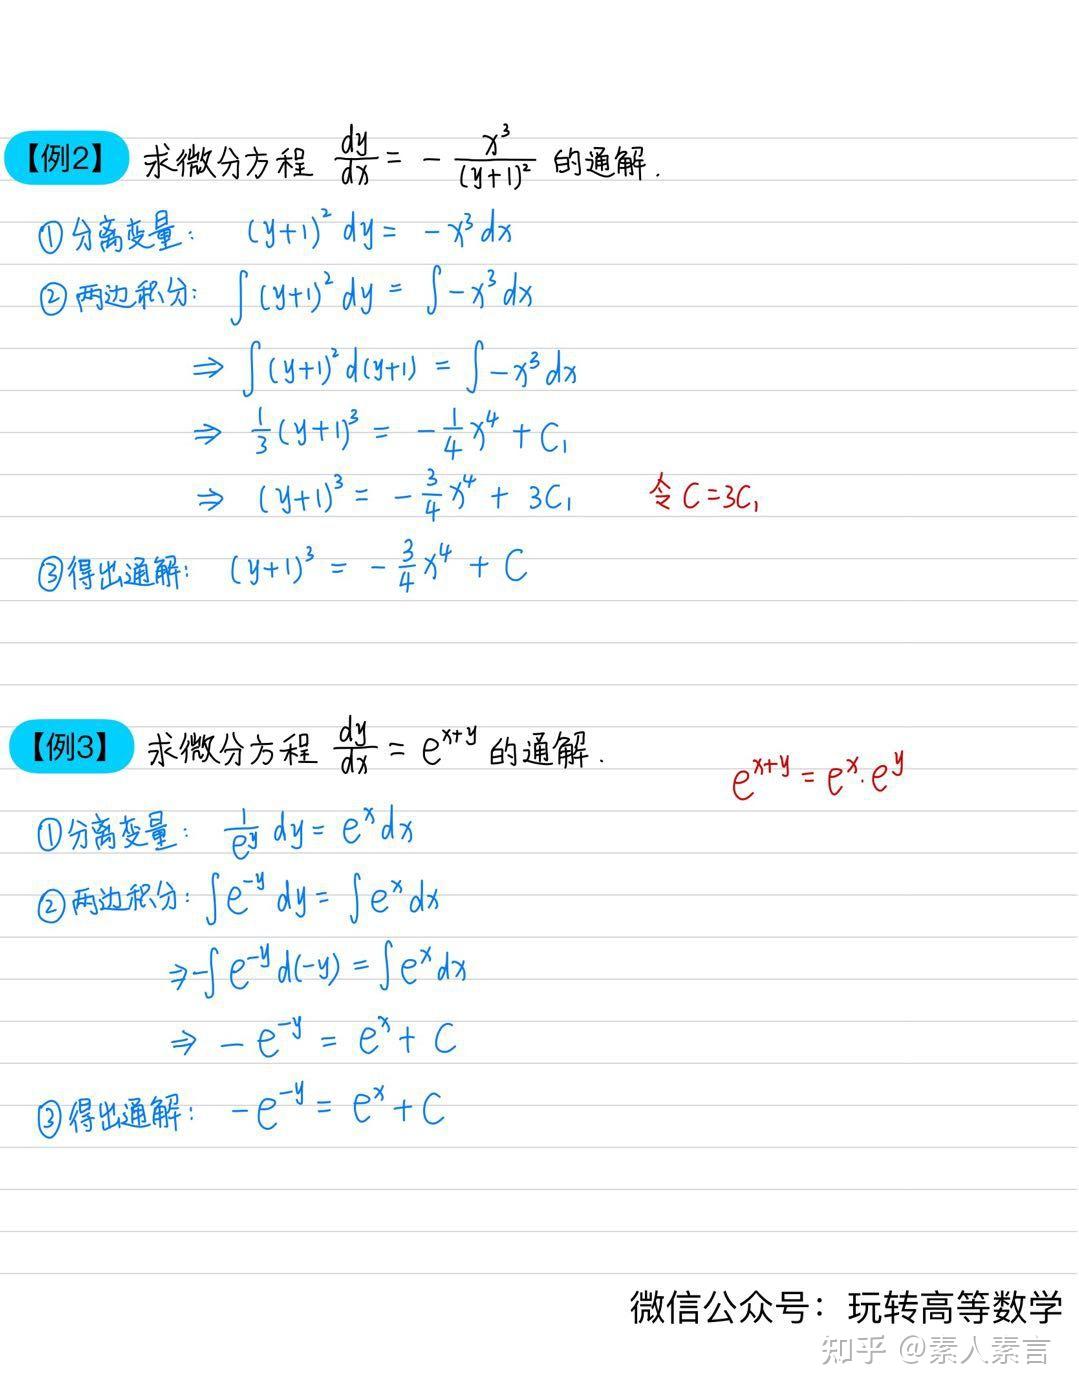 【例2】 求微分方程 dy/dx = - x³/(y+1)² 的通解.
①分离变量: (y+1)² dy = -x³ dx
②两边积分: ∫(y+1)² dy = ∫-x³ dx
⇒ ∫(y+1)² d(y+1) = ∫-x³ dx
⇒ 1/3 (y+1)³ = -1/4 x⁴ + C₁
⇒ (y+1)³ = -3/4 x⁴ + 3C₁ 令 C=3C₁
③得出通解: (y+1)³ = -3/4 x⁴ + C
【例3】 求微分方程 dy/dx = e^(x+y) 的通解. e^(x+y) = e^x · e^y
①分离变量: 1/e^y dy = e^x dx
②两边积分: ∫e^(-y) dy = ∫e^x dx
⇒ -∫e^(-y) d(-y) = ∫e^x dx
⇒ -e^(-y) = e^x + C
③得出通解: -e^(-y) = e^x + C
微信公众号：玩转高等数学
知乎 @素人素言